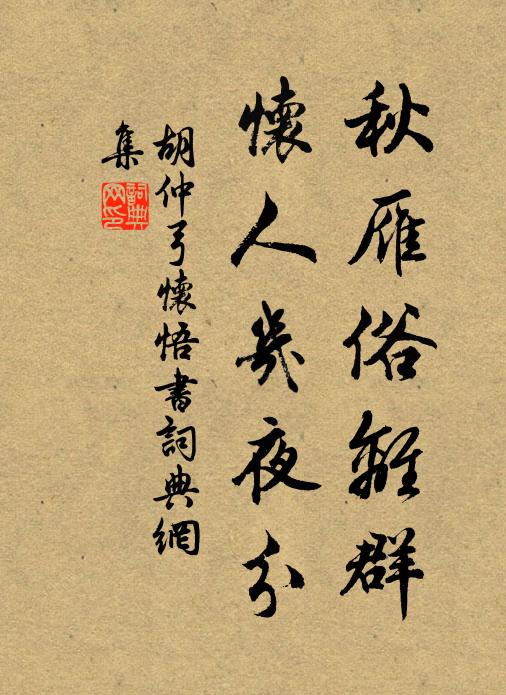 秋雁俗離群
懷人幾夜分
胡仲弓懷悟書詞典網
集
詞典网印